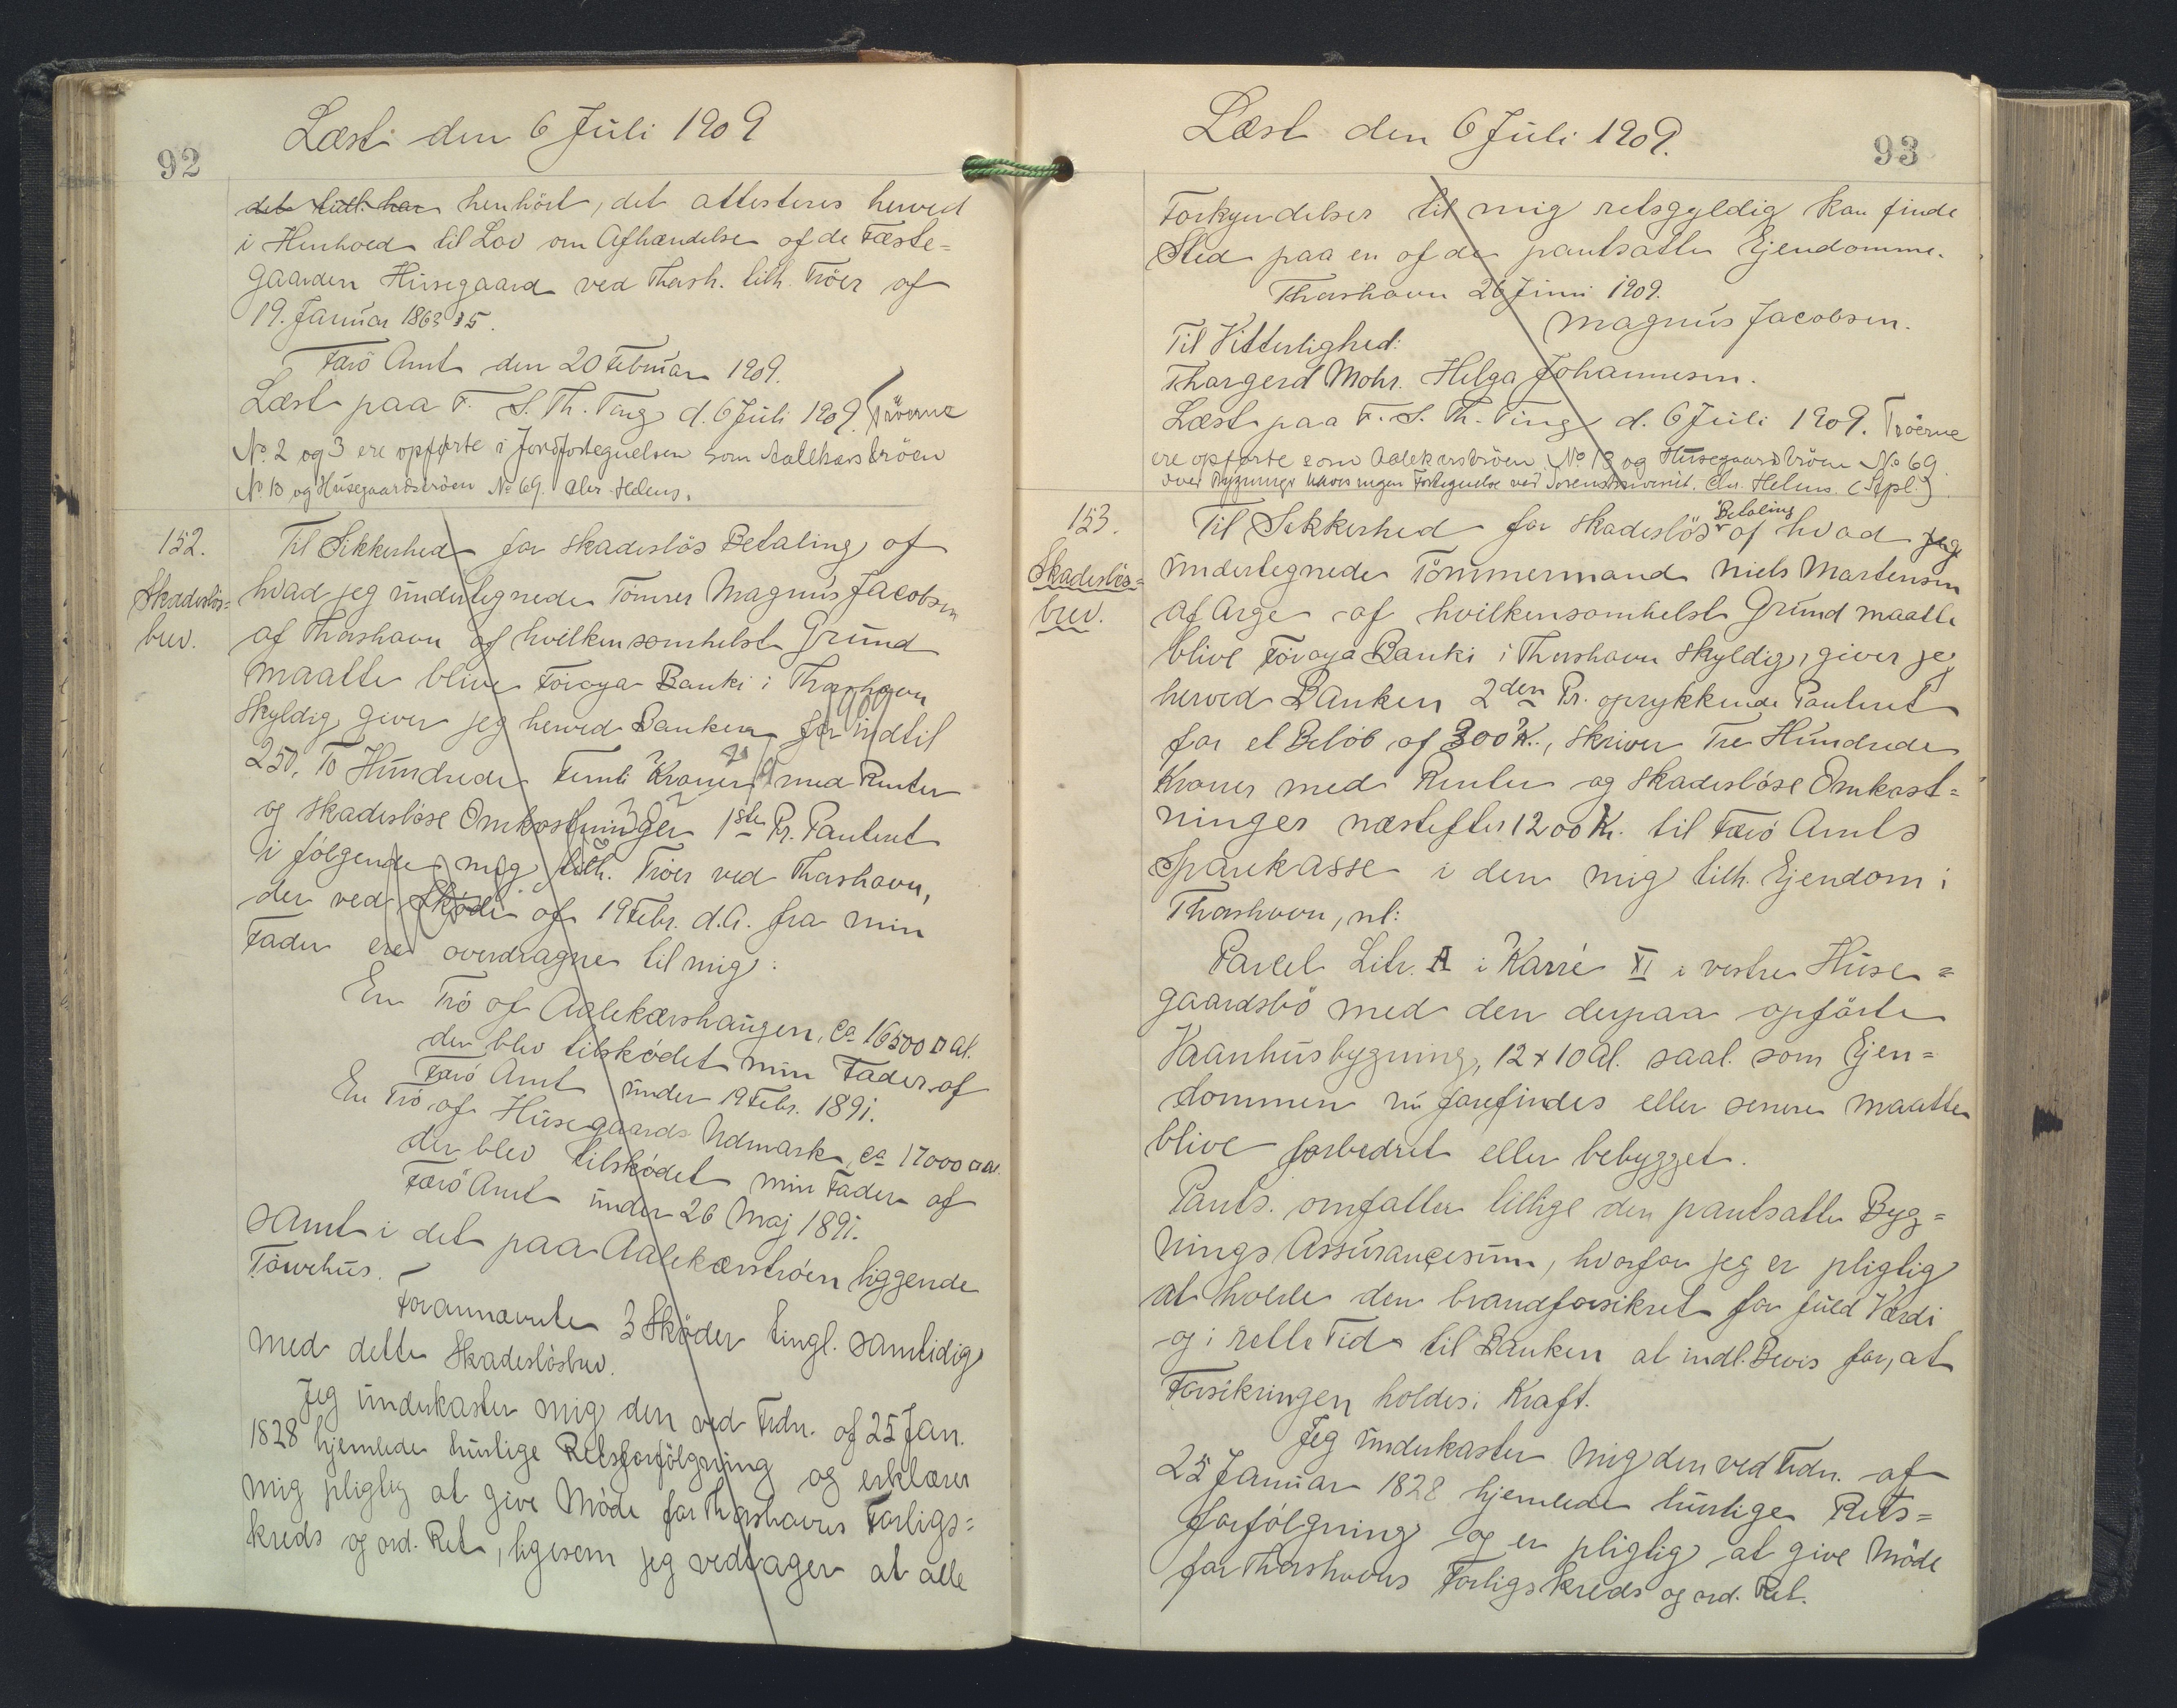 92
Læst den 6 Juli 1909
det tidl. har henhört, det attesteres herved
i Henhold til Lov om Afhændelse af de Fæste=
gaarden Husegaard ved Thorsh. tilh. Tröer af
19. Januar 1863 § 5.
Færö Amt den 20 Februar 1909.
Læst paa F. S. Th. Ting d. 6 Juli 1909. Tröerne
No. 2 og 3 ere opførte i Jordfortegnelsen som Aalekærströen
No 13 og Husegaardströen No 69. Chr. Helms.
152.
Skadeslös=
brev.
Til Sikkerhed for skadeslös Betaling af
hvad jeg undertegnede Tömrer Magnus Jacobsen
af Thorshavn af hvilkensomhelst Grund
maatte blive Föroya Banki i Thorshavn
skyldig giver jeg herved Banken for indtil
250, To Hundrede Femti Kroner med Renter
og skadeslöse Omkostninger 1ste Pr. Panteret
i följende mig tilh. Tröer ved Thorshavn,
der ved Sköde af 19 Febr. d.A. fra min
Fader ere overdragne til mig:
En Trö af Aalekærshaugen, ca 16500 □ Al.
der blev tilsködet min Fader af
Færö Amt under 19 Febr. 1891.
En Trö af Husegaards Udmark, ca 17000 □ Al.
der blev tilsködet min Fader af
Færö Amt under 26 Maj 1891.
samt i det paa Aalekærströen liggende
Törvehus.
Forannævnte 3 Sköder tingl. samtidig
med dette Skadeslösbrev.
Jeg underkaster mig den ved Frdn. af 25 Jan.
1828 hjemlede hurtige Retsforfölgning og erklærer
mig pligtig at give Möde for Thorshavns Forligs=
kreds og ord. Ret, ligesom jeg vedtager at alle
93
Læst den 6 Juli 1909.
Forkyndelser til mig retsgyldig kan finde
Sted paa en af de pantsatte Ejendomme.
Thorshavn 26 Juni 1909.
Magnus Jacobsen.
Til Vitterlighed:
Thorgerd Mohr. Helga Johannesen.
Læst paa F. S. Th. Ting d. 6 Juli 1909. Tröerne
ere opførte som Aalekærströen No 13 og Husegaardströen No 69.
over Bygninger haves ingen Fortegnelse ved Sorenskriveriet. Chr. Helms. (Stpl.)
153.
Skadeslös=
brev.
Til Sikkerhed for skadeslös Betaling af hvad jeg
undertegnede Tömmermand Niels Martensen
af Arge af hvilkensomhelst Grund maatte
blive Föroya Banki i Thorshavn skyldig, giver jeg
herved Banken 2den Pr. oprykkende Panteret
for et Belöb af 300 K., skriver Tre Hundrede
Kroner med Renter og skadeslöse Omkost=
ninger næstefter 1200 Kr. til Færö Amts
Sparekasse i den mig tilh. Ejendom i
Thorshavn, nl:
Parcel Litr. A i Karré XI i vestre Huse=
gaardsbö med den derpaa opførte
Vaanhusbygning, 12 x 10 Al. saal. som Ejen=
dommen nu forefindes eller senere maatte
blive forbedret eller bebygget.
Pants. omfatter tillige den pantsatte Byg=
nings Assurancesum, hvorfor jeg er pligtig
at holde den brandforsikret for fuld Værdi
og i rette Tid til Banken at indl. Bevis for, at
Forsikringen holdes i Kraft.
Jeg underkaster mig den ved Frdn. af
25 Januar 1828 hjemlede hurtige Rets=
forfölgning og er pligtig at give Möde
for Thorshavns Forligskreds og ord. Ret.